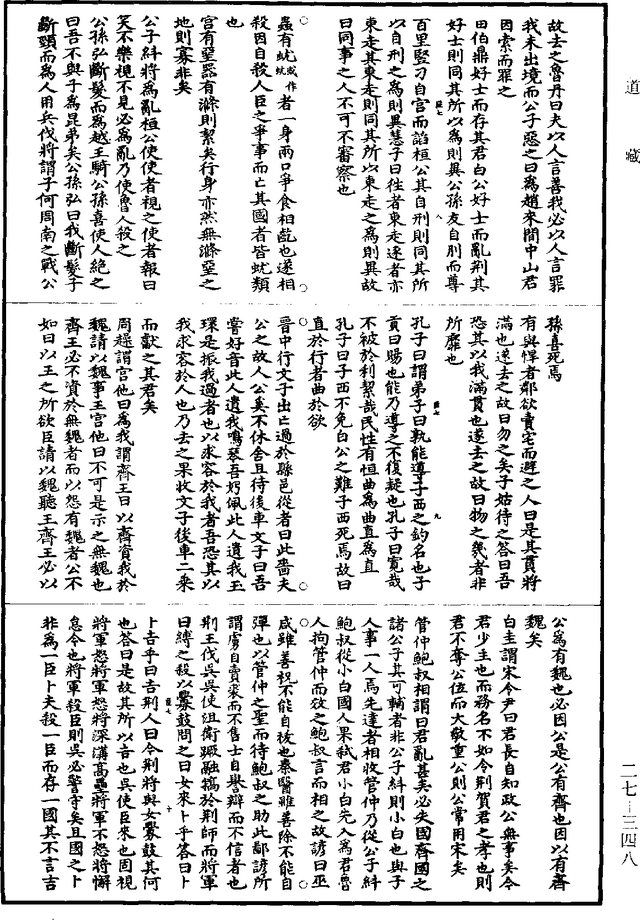 道藏
故去之魯丹曰夫以人言善我必以人言罪
我未出境而公子惡之曰為趙來間中山君
因索而罪之
田伯鼎好士而存其君白公好士而亂荆其
好士則同其所以為則異公孫友自刖而尊
百里竪刁自宮而諂桓公其自刑則同其所
以自刑之為則異慧子曰往者東走逐者亦
東走其東走則同其所以東走之為則異故
曰同事之人不可不審察也
蟲有蚘或作蚘者一身兩口爭食相齕也遂相
殺因自殺人臣之爭事而亡其國者皆蚘類
也
宮有堊器有滌則絜矣行身亦然無滌堊之
地則寡非矣
公子糾將為亂桓公使使者視之使者報曰
笑不樂視不見必為亂乃使魯人殺之
公孫弘斷髮而為越王騎公孫喜使人絕之
曰吾不與子為昆弟矣公孫弘曰我斷髮子
斷頸而為人用兵我將謂子何周南之戰公
孫喜死焉
有與悍者鄰欲賣宅而避之人曰是其貫將
滿也遂去之故曰勿之矣子姑待之答曰吾
恐其以我滿貫也遂去之故曰物之幾者非
所靡也
孔子曰謂弟子曰孰能導子西之釣名也子
貢曰賜也能乃導之不復疑也孔子曰寬哉
不被於利絜哉民性有恒曲為曲直為直
孔子曰子西不免白公之難子西死焉故曰
直於行者曲於欲
晉中行文子出亡過於縣邑從者曰此嗇夫
公之故人公奚不休舍且待後車文子曰吾
嘗好音此人遺我鳴琴吾好珮此人遺我玉
環是振我過者也以求容於我者吾恐其以
我求容於人也乃去之果收文子後車二乘
而獻之其君矣
周趮謂宮他曰為我謂齊王曰以齊資我於
魏請以魏事王宮他曰不可是示之無魏也
齊王必不資於無魏者而以怨有魏者公不
如曰以王之所欲臣請以魏聽王齊王必以
公為有魏也必因公是公有齊也因以有齊
魏矣
白圭謂宋令尹曰君長自知政公無事矣今
君少主也而務名不如令荆賀君之孝也則
君不奪公位而大敬重公則公常用宋矣
管仲鮑叔相謂曰君亂甚矣必失國齊國之
諸公子其可輔者非公子糾則小白也與子
人事一人焉先達者相收管仲乃從公子糾
鮑叔從小白國人果弒君小白先入為君魯
人拘管仲而效之鮑叔言而相之故諺曰巫
咸雖善祝不能自祓也秦醫雖善除不能自
彈也以管仲之聖而待鮑叔之助此鄙諺所
謂虜自賣裘而不售士自譽辯而不信者也
荆王伐吳吳使沮衛蹶融犒於荆師而將軍
曰縛之殺以釁鼓問之曰女來卜乎答曰卜
卜吉乎曰吉荆人曰今荆將與女釁鼓其何
也答曰是故其所以吉也吳使臣來也固視
將軍怒將軍怒將深溝高壘將軍不怒將懈
怠今也將軍殺臣則吳必警守矣且國之卜
非為一臣卜夫殺一臣而存一國其不言吉
二七—三四八